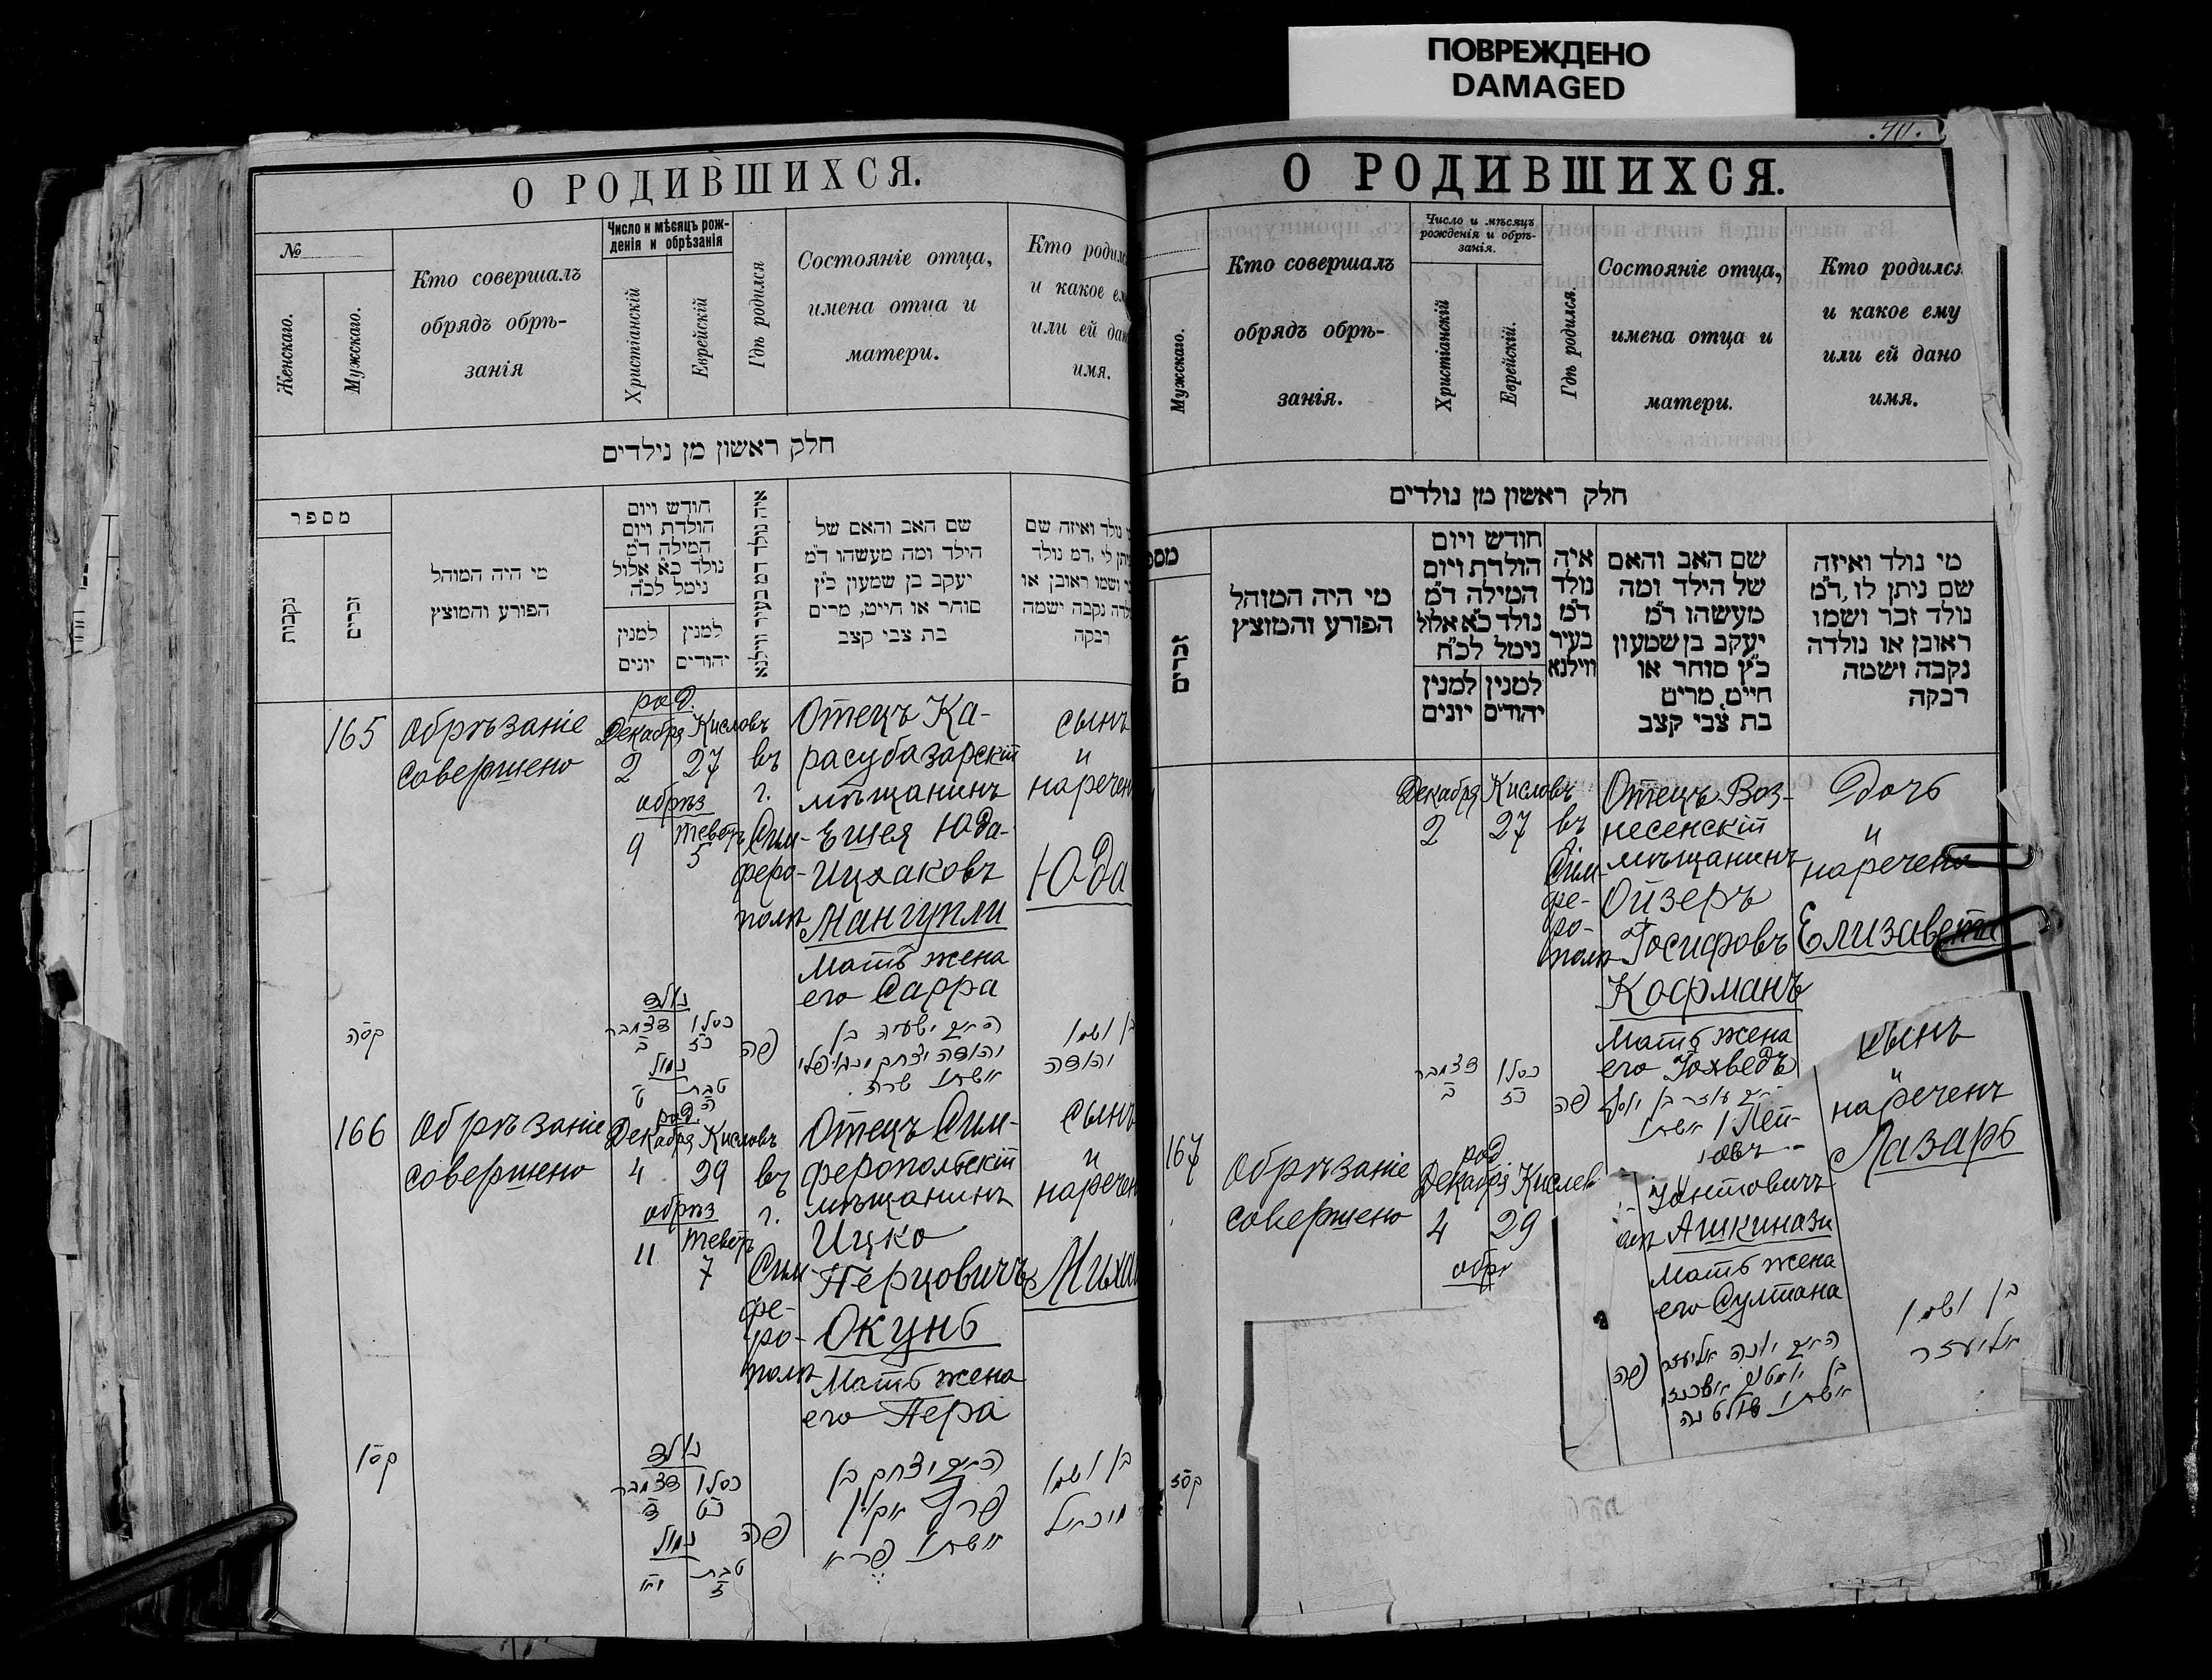 ПОВРЕЖДЕНО
DAMAGED
О РОДИВШИХСЯ.
№
Женскаго.
Мужскаго.
Кто совершалъ
обрядъ обрѣ-
занія
Число и мѣсяцъ рож-
денія и обрѣзанія
Христіанскій
Еврейскій
Гдѣ родился
Состояніе отца,
имена отца и
матери.
Кто родилс
и какое ем
или ей дан
имя.
חלק ראשון מן נילדים
מספר
נקבות
זכרים
מי היה המוהל
הפורע והמוצץ
חודש ויום
הולדת ויום
המילה ד״מ
נולד כ״א אלול
נימל לכ״ח
למנין
יהודים
למנין
יונים
איה נולד דמ בעיר ווילנא
שם האב והאם של
הילד ומה מעשהו ד״מ
יעקב בן שמעון כ״ץ
סוחר או חייט, מרים
בת צבי קצב
נולד ואיזה שם
יתן לי, דמ נולד
ושמו ראובן או
לדה נקבה ישמה
רבקה
165
Обрѣзаніе
совершено
род.
Декабря Кисловъ
2 27
обрѣз
Теветъ
9 5
въ
г.
Сим-
феро-
полѣ
Отецъ Ка-
расубазарскій
мѣщанинъ
Ешея Юда-
Ицхаковъ
Мангупли
Мать жена
его Сарра
сынъ
и
наречен
Юда
קסה
נולד
דצמבר כסלו
ב כז
נמול
טבת
ט ה
פה
ה״ה ישעיה בן
יהודה יצחק מנגופלי
אשתו שרה
בן ושמו
יהודה
166
Обрѣзаніе
совершено
род.
Декабря Кисловъ
4 29
обрѣз
Теветъ
11 7
въ
г.
Сим-
фе-
ро-
полѣ
Отецъ Сим-
феропольскій
мѣщанинъ
Ицко
Перцовичъ
Окунь
Мать жена
его Пера
сынъ
и
наречен
Миха
קסו
נולד
דצמבר כסלו
ד כט
נמול
טבת
יא ז
פה
יצחק בן
פרץ אקון
אשתו פרא
בן ושמו
מיכאל
.40.
О РОДИВШИХСЯ.
Мужскаго.
Кто совершалъ
обрядъ обрѣ-
занія.
Число и мѣсяцъ
рожденія и обрѣ-
занія.
Христіанскій
Еврейскій.
Гдѣ родился.
Состояніе отца,
имена отца и
матери.
Кто родился
и какое ему
или ей дано
имя.
חלק ראשון מן נולדים
מספ
זכרים
מי היה המוהל
הפורע והמוצץ
חודש ויום
הולדת ויום
המילה ד״מ
נולד כ״א אלול
נימל לכ״ח
למנין
יהודים
למנין
יונים
איה
נולד
ד״מ
בעיר
ווילנא
שם האב והאם
של הילד ומה
מעשהו ד״מ
יעקב בן שמעון
כ״ץ סוחר או
חייט, מרים
בת צבי קצב
מי נולד ואיזה
שם ניתן לו, ד״מ
נולד זכר ושמו
ראובן או נולדה
נקבה ושמה
רבקה
Декабря Кисловъ
2 27
въ
Сим-
фе-
ро-
полѣ
Отецъ Воз-
несенскій
мѣщанинъ
Ойзеръ
Іосифовъ
Кофманъ
Мать жена
его Іохведъ
Дочь
и
наречена
Елизавета
דצמבר כסלו
ב כז
פה
בן יוסף
אשתו
167
Обрѣзаніе
совершено
род
Декабря Кислев
4 29
обр
Іонтовичъ
Ашкинази
Мать жена
его Султана
сынъ
и
нареченъ
Лазарь
קסז
פה
ה״ה יונה אליעזר
בן יומטוב אשכנזי
אשתו שולטנה
בן ושמו
אליעזר